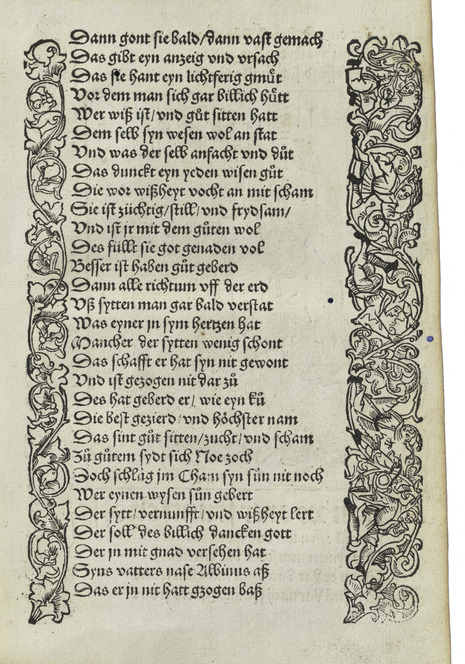 Dann gont sie bald/dann vast gemach
Das gibt eyn anzeig vnd vrsach
Das sie hant eyn lichtferig gmuͤt
Vor dem man sich gar billich huͤtt
Wer wiß ist/vnd guͦt sitten hatt
Dem selb syn wesen wol an stat
Vnd was der selb anfacht vnd duͦt
Das dunckt eyn yeden wisen guͦt
Die wor wißheyt vocht an mit scham
Sie ist zuͤchtig/still/vnd frydsam/
Vnd ist jr mit dem guͦten wol
Des fuͤllt sie got genaden vol
Besser ist haben guͦt geberd
Dann alle richtum vff der erd
Vß sytten man gar bald verstat
Was eyner jn sym hertzen hat
Mancher der sytten wenig schont
Das schafft er hat syn nit gewont
Vnd ist gezogen nit dar zuͦ
Des hat geberd er/wie eyn kuͦ
Die best gezierd/vnd hoͤchster nam
Das sint guͦt sitten/zucht/vnd scham
Zuͦ guͦtem sydt sich Noe zoch
Doch schluͦg jm Cham syn suͦn nit noch
Wer eynen wysen suͦn gebert
Der sytt/vernunfft/vnd wißheyt lert
Der soll des billich dancken gott
Der jn mit gnad versehen hat
Syns vatters nase Albinus aß
Das er jn nit hatt gzogen baß